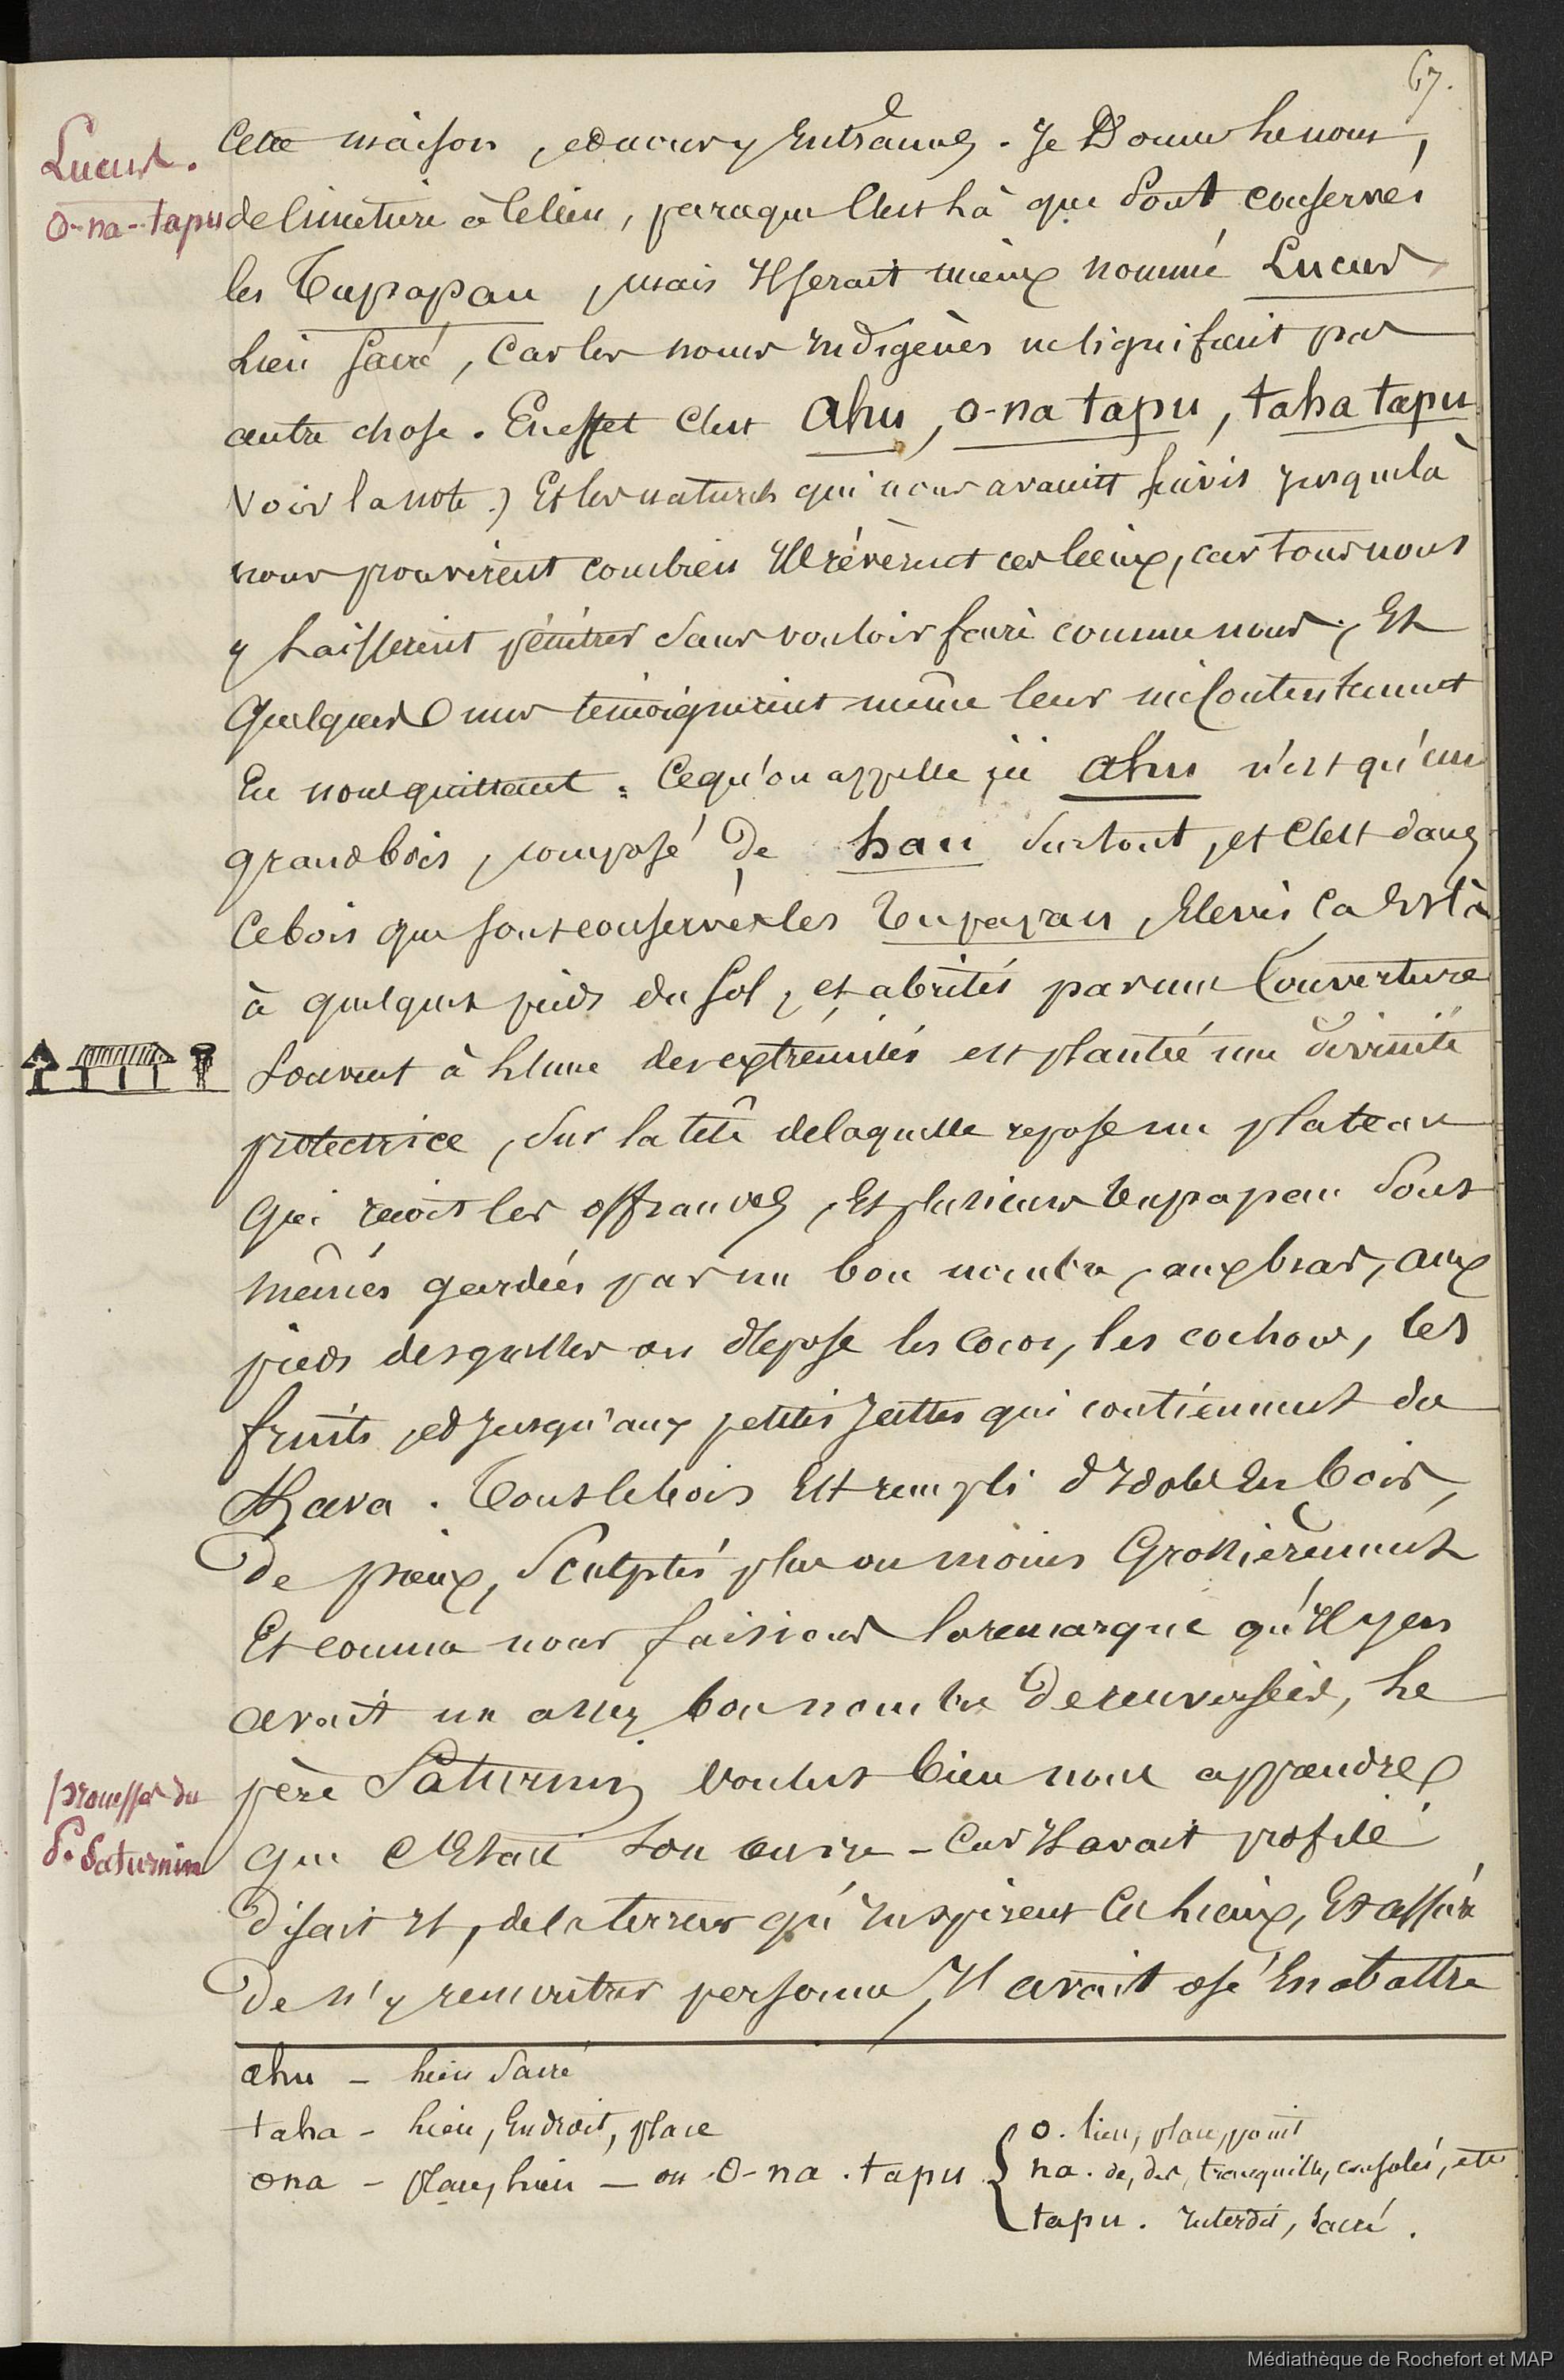 67.
Lucus.
o-na-tapu
Cette maison, et nous y entrâmes. Je donne le nom,
de cimetière à ce lieu, parceque c'est là que sont conservés
les Tupapau, mais il serait mieux nommé Lucus
lieu sacré, car les noms indigènes ne signifient pas
autre chose. En effet c'est ahu, o-na tapu, taha tapu
voir la note.) Et les naturels qui nous avaient suivis jusque là
nous prouvèrent combien ils révèrent ces lieux, car tous nous
y laissèrent pénétrer sans vouloir faire comme nous; Et
quelques uns témoignèrent même leur mécontentement
En nous quittant. Ce qu'on appelle ici ahu n'est qu'un
grand bois, composé de hau surtout, et c'est dans
ce bois que sont conservés les Tupapau, élevés ça et là
à quelques pieds du sol, et abrités par une couverture
souvent à l'une des extrémités est plantée une divinité
protectrice, sur la tête de laquelle repose un plateau
qui reçoit les offrandes, Et plusieurs tupapau sont
mêmes gardées par un bon nombre, aux bras, aux
pieds desquelles on dépose les cocos, les cochons, les
fruits, et jusqu'aux petites jattes qui contiennent du
Kava. Tout le bois est rempli d'idoles en bois,
de pieux, sculptés plus ou moins grossièrement
Et comme nous faisions la remarque qu'il y en
avait un assez bon nombre de renversées, le
père Saturnin voulut bien nous apprendre
que c'était son œuvre - car il avait profité
disait il, de la terreur qu'inspirent ces lieux, Et assuré
de n'y rencontrer personne, il avait osé en abattre
prouesses du
P. Saturnin
ahu - lieu sacré
taha - lieu, endroit, place
ona - place, lieu - ou o-na. tapu
o. lieu, place, point
na. de, des, tranquille, consolés, etc
tapu. interdit, sacré.
Médiathèque de Rochefort et MAP